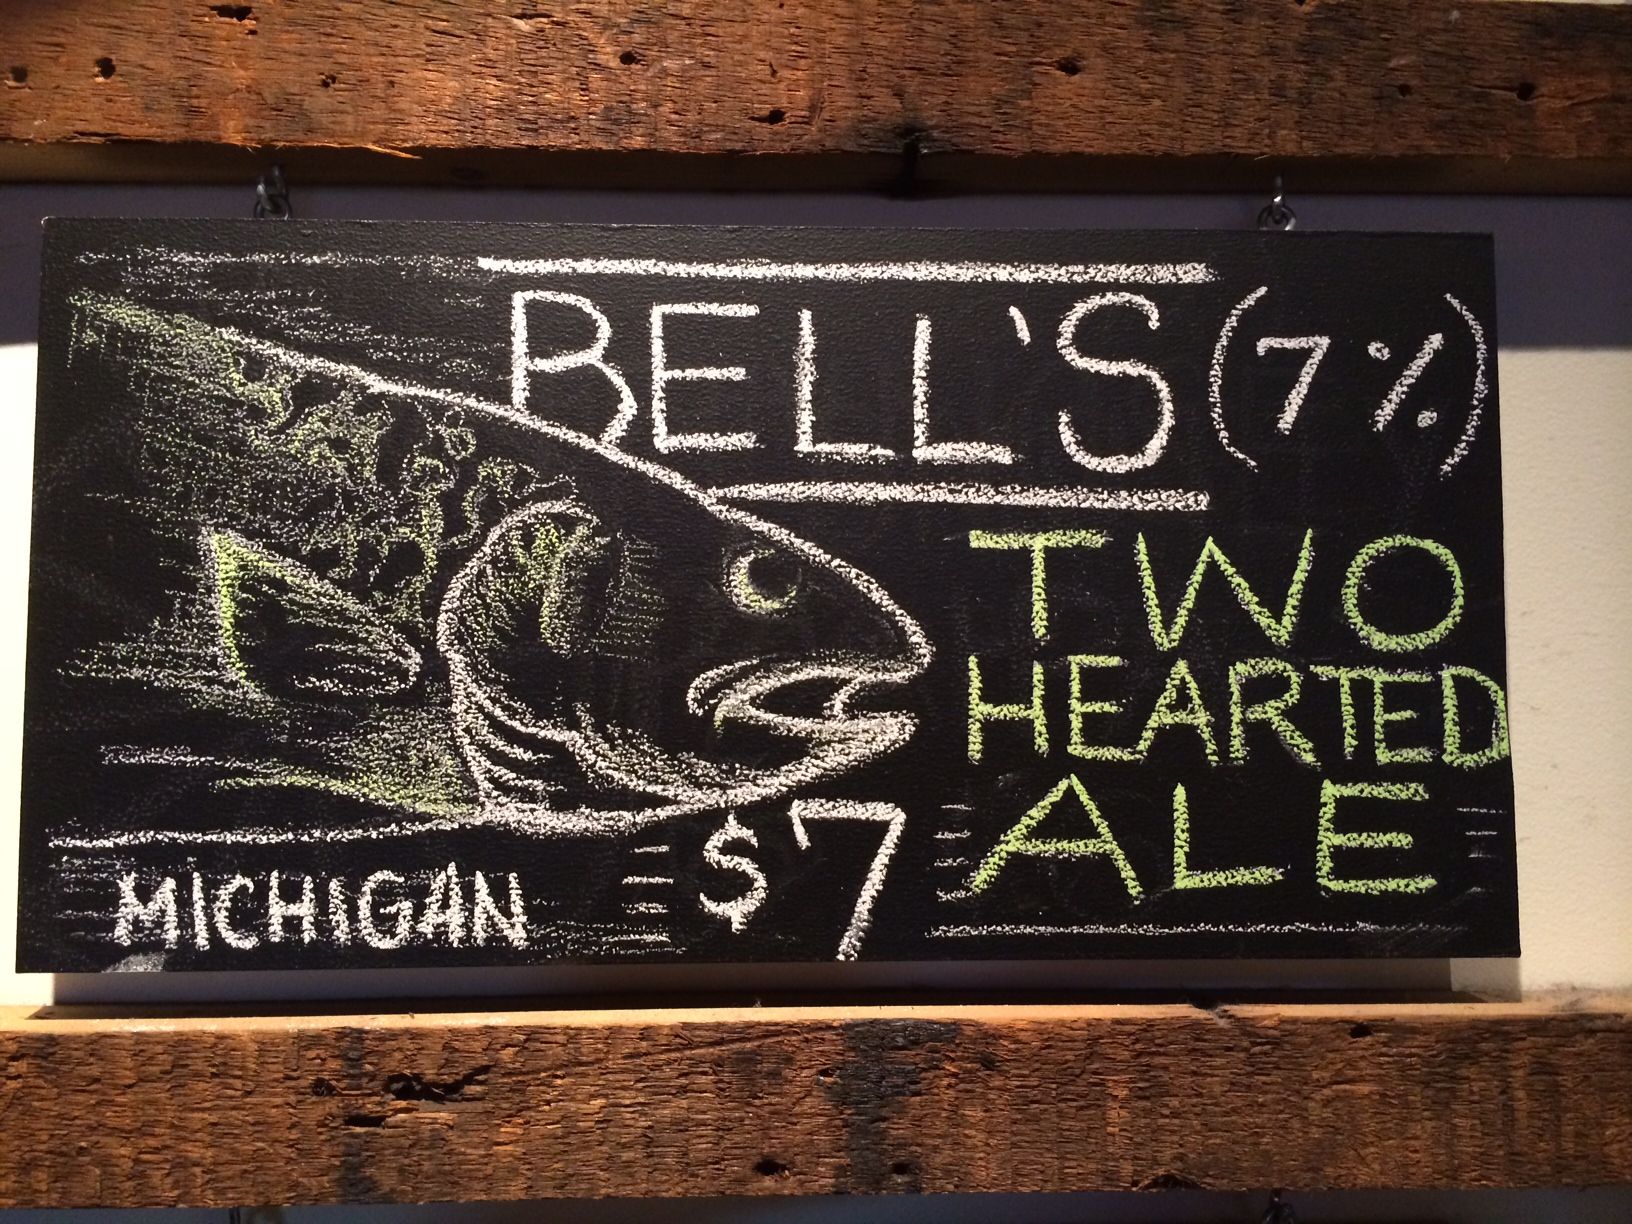 BELL'S (7%)
TWO
HEARTED
ALE
$7
MICHIGAN